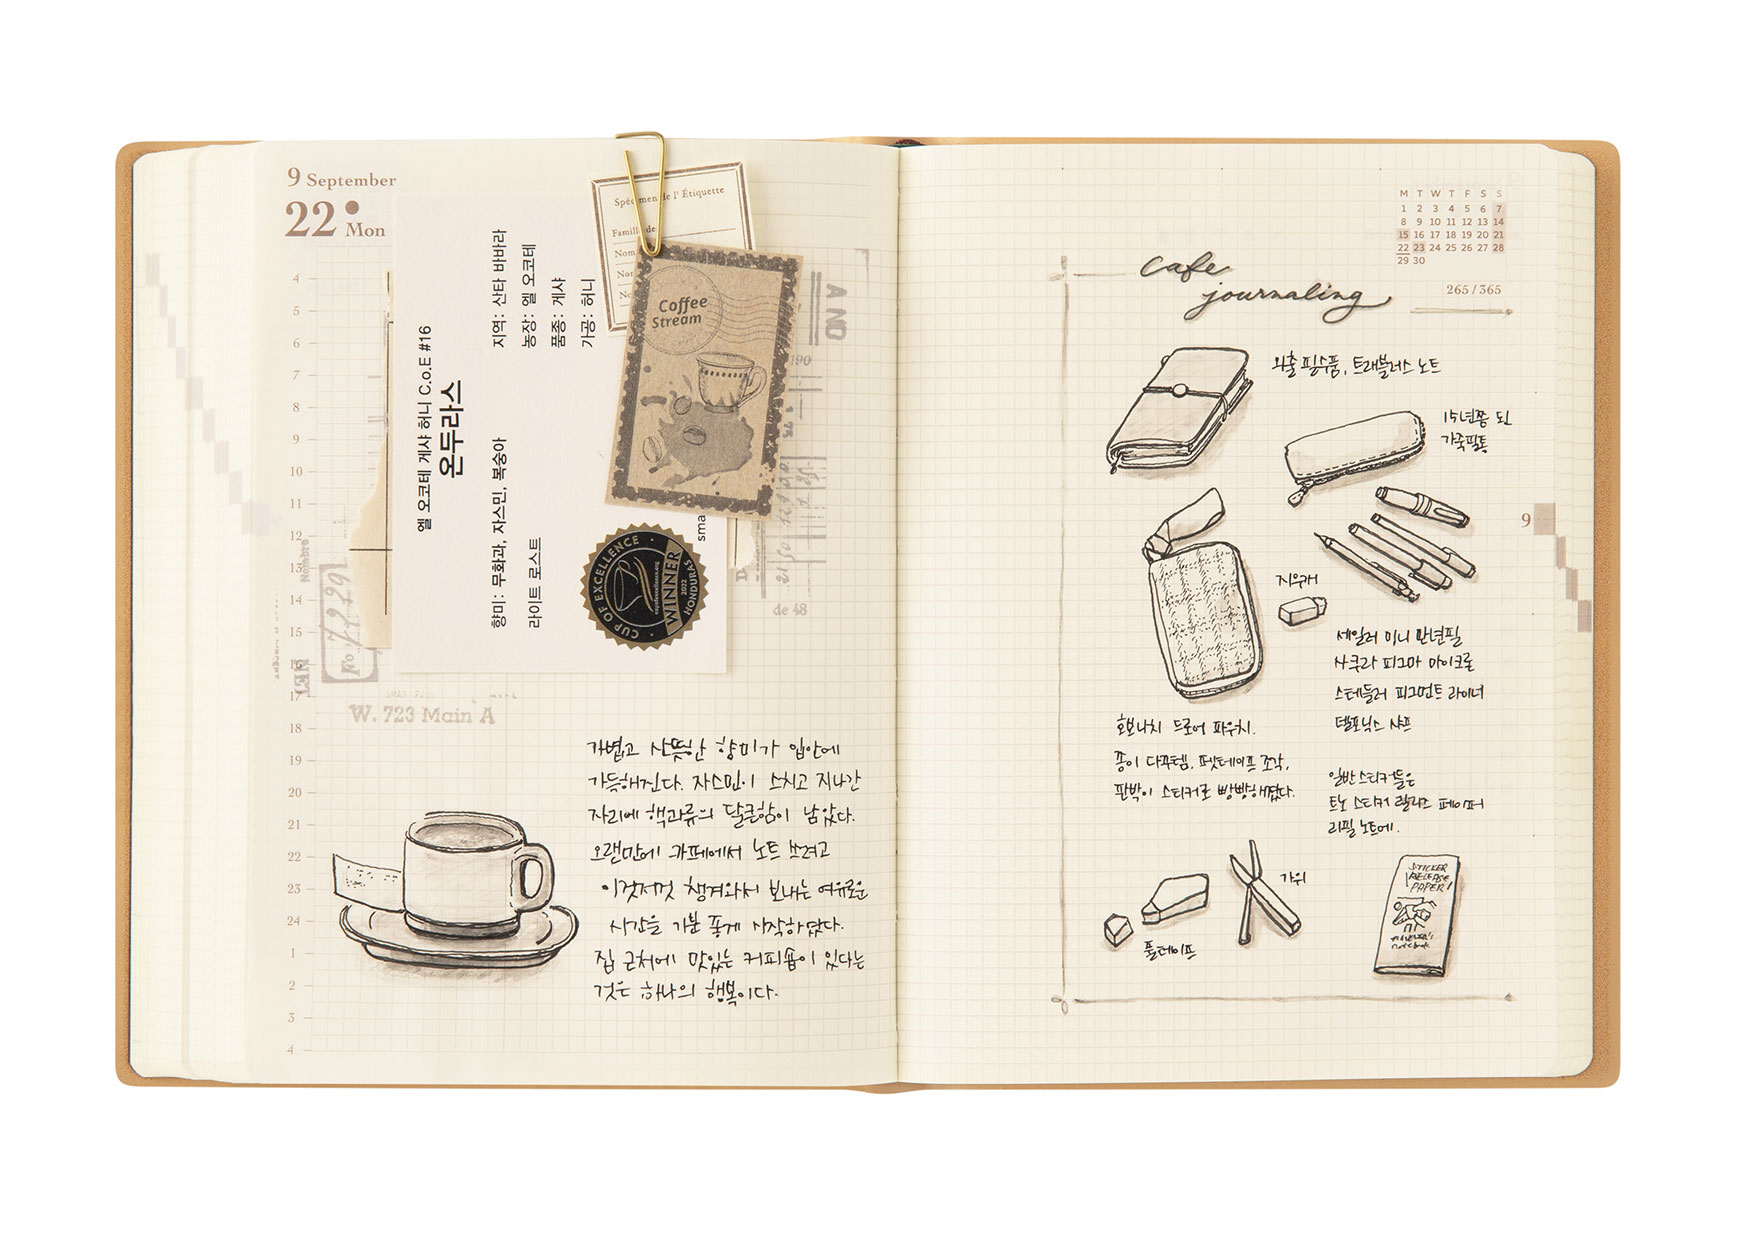 9 September
22 Mon
4
5
6
7
8
9
10
11
12
13
14
15
16
17
18
19
20
21
22
23
24
1
2
3
4
엘 오코테 게샤 허니 C.o.E #16
온두라스
지역: 산타 바바라
농장: 엘 오코테
품종: 게샤
가공: 허니
향미: 무화과, 자스민, 복숭아
라이트 로스트
sma
Spécimen de l' Étiquette
Famille de
Nom
No
Coffee
Stream
CUP OF EXCELLENCE
WINNER
2022
HONDURAS
AND
190
de 48
Nombre
W. 723 Main A
가볍고 산뜻한 향미가 입안에
가득해진다. 자스민이 스치고 지나간
자리에 핵과류의 달큰함이 남았다.
오랜만에 카페에서 노트 쓰려고
이것저것 챙겨와서 보내는 여유로운
시간을 기분 좋게 시작하였다.
집 근처에 맛있는 커피숍이 있다는
것은 하나의 행복이다.
M T W T F S S
1 2 3 4 5 6 7
8 9 10 11 12 13 14
15 16 17 18 19 20 21
22 23 24 25 26 27 28
29 30
265/365
9
cafe
journaling
외출 필수품, 트래블러스 노트
15년쯤 된
가죽필통
지우개
세일러 미니 만년필
사쿠라 피그마 마이크론
스테들러 피그먼트 라이너
델포닉스 샤프
호보니치 드로어 파우치.
종이 다꾸템, 펫테이프 조각,
판박이 스티커로 빵빵해졌다.
일반 스티커들은
트노 스티커 릴리즈 페이퍼
리필 노트에.
풀테이프
가위
STICKER
RELEASE
PAPER!
TRAVELER'S
notebook